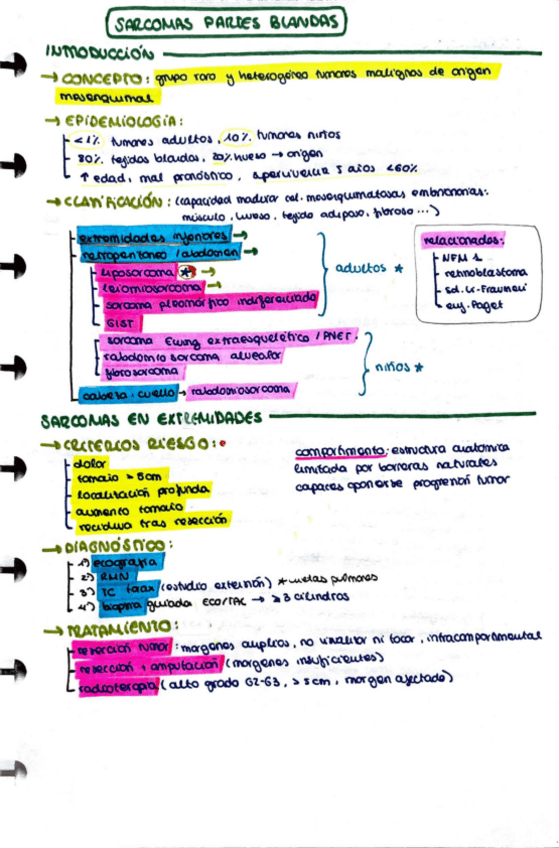 SARCOMAS PARTES BLANDAS
INTRODUCCIÓN
→ CONCEPTO: grupo raro y heterogéneo tumores malignos de origen
mesenquimal
→ EPIDEMIOLOGÍA:
<1% tumores adultos, 10% tumores niños
80% tejidos blandos, 20% hueso → origen
↑ edad, mal pronóstico, supervivencia 5 años <60%
→ CLASIFICACIÓN: (capacidad madurar cel. mesenquimatosas embrionarias:
músculo, hueso, tejido adiposo, fibroso...)
extremidades inferiores →
retroperitoneo / abdomen →
liposarcoma * →
leiomiosarcoma →
sarcoma pleomórfico indiferenciado
GIST
adultos *
sarcoma Ewing extraesquelético / PNET.
rabdomiosarcoma alveolar
fibrosarcoma
niños *
cabeza, cuello → rabdomiosarcoma
relacionados:
NFM 1
retinoblastoma
sd. Li-Fraumeni
enf. Paget
SARCOMAS EN EXTREMIDADES
→ CRITERIOS RIESGO:
dolor
tamaño > 5cm
localización profunda
aumento tamaño
recidiva tras resección
compartimento: estructura anatómica
limitada por barreras naturales
capaces oponerse progresión tumor
→ DIAGNÓSTICO:
1º) ecografía
2º) RMN
3º) TC tórax (estudio extensión) * metas pulmones
4º) biopsia guiada ECO/TAC → ≥3 cilindros
→ TRATAMIENTO:
resección tumor: márgenes amplios, no visualizar ni tocar, intracompartimental
resección + amputación (márgenes insuficientes)
radioterapia (alto grado G2-G3, >5cm, margen afectado)